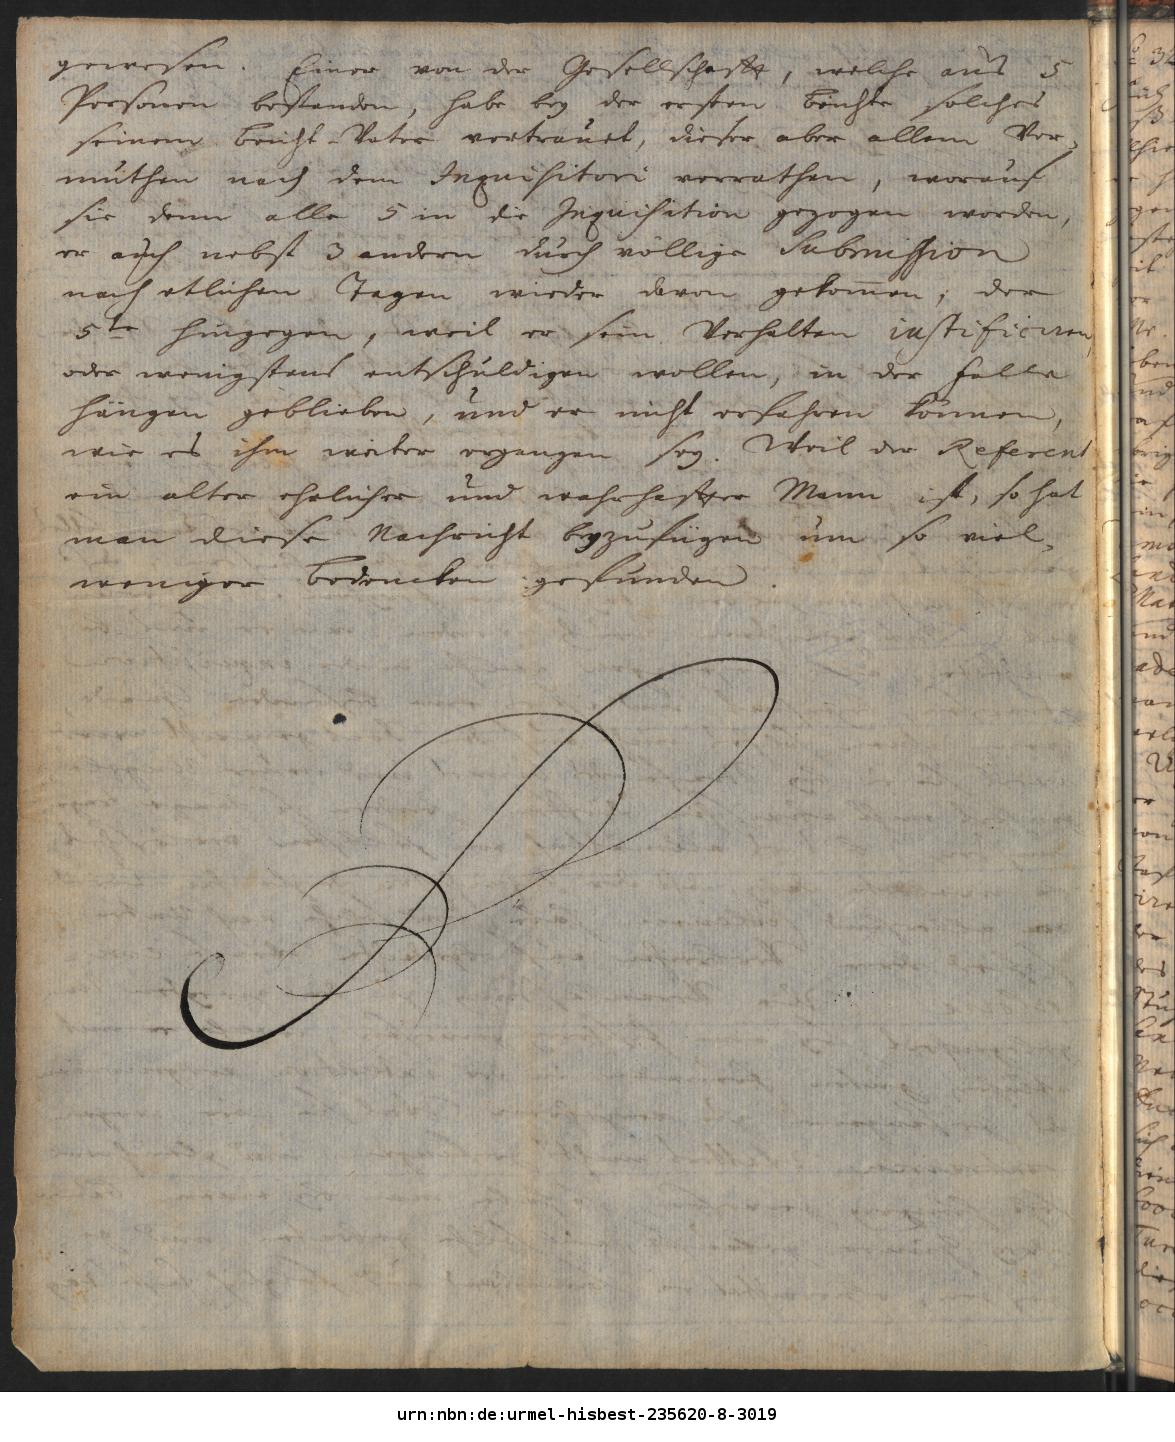 gewesen. Einer von der Gesellschafft, welche aus 5
Personen bestanden, habe bey der ersten beichte solches
seinem beicht-Vater vertrauet, dieser aber allem Ver-
muthen nach dem Inquisitori verrathen, worauf
sie denn alle 5 in die Inquisition gezogen worden,
er auch nebst 3 andern durch völlige Submission
nach etlichen Tagen wieder davon gekom̅en; der
5te hingegen, weil er sein Verhalten iustificiren,
oder wenigstens entschuldigen wollen, in der Falle
hängen geblieben, und er nicht erfahren können,
wie es ihm weiter ergangen sey. Weil der Referent
ein alter ehrlicher und wahrhaffter Mann ist, so hat
man diese Nachricht beyzufügen um so viel-
weniger bedencken gefunden.
urn:nbn:de:urmel-hisbest-235620-8-3019